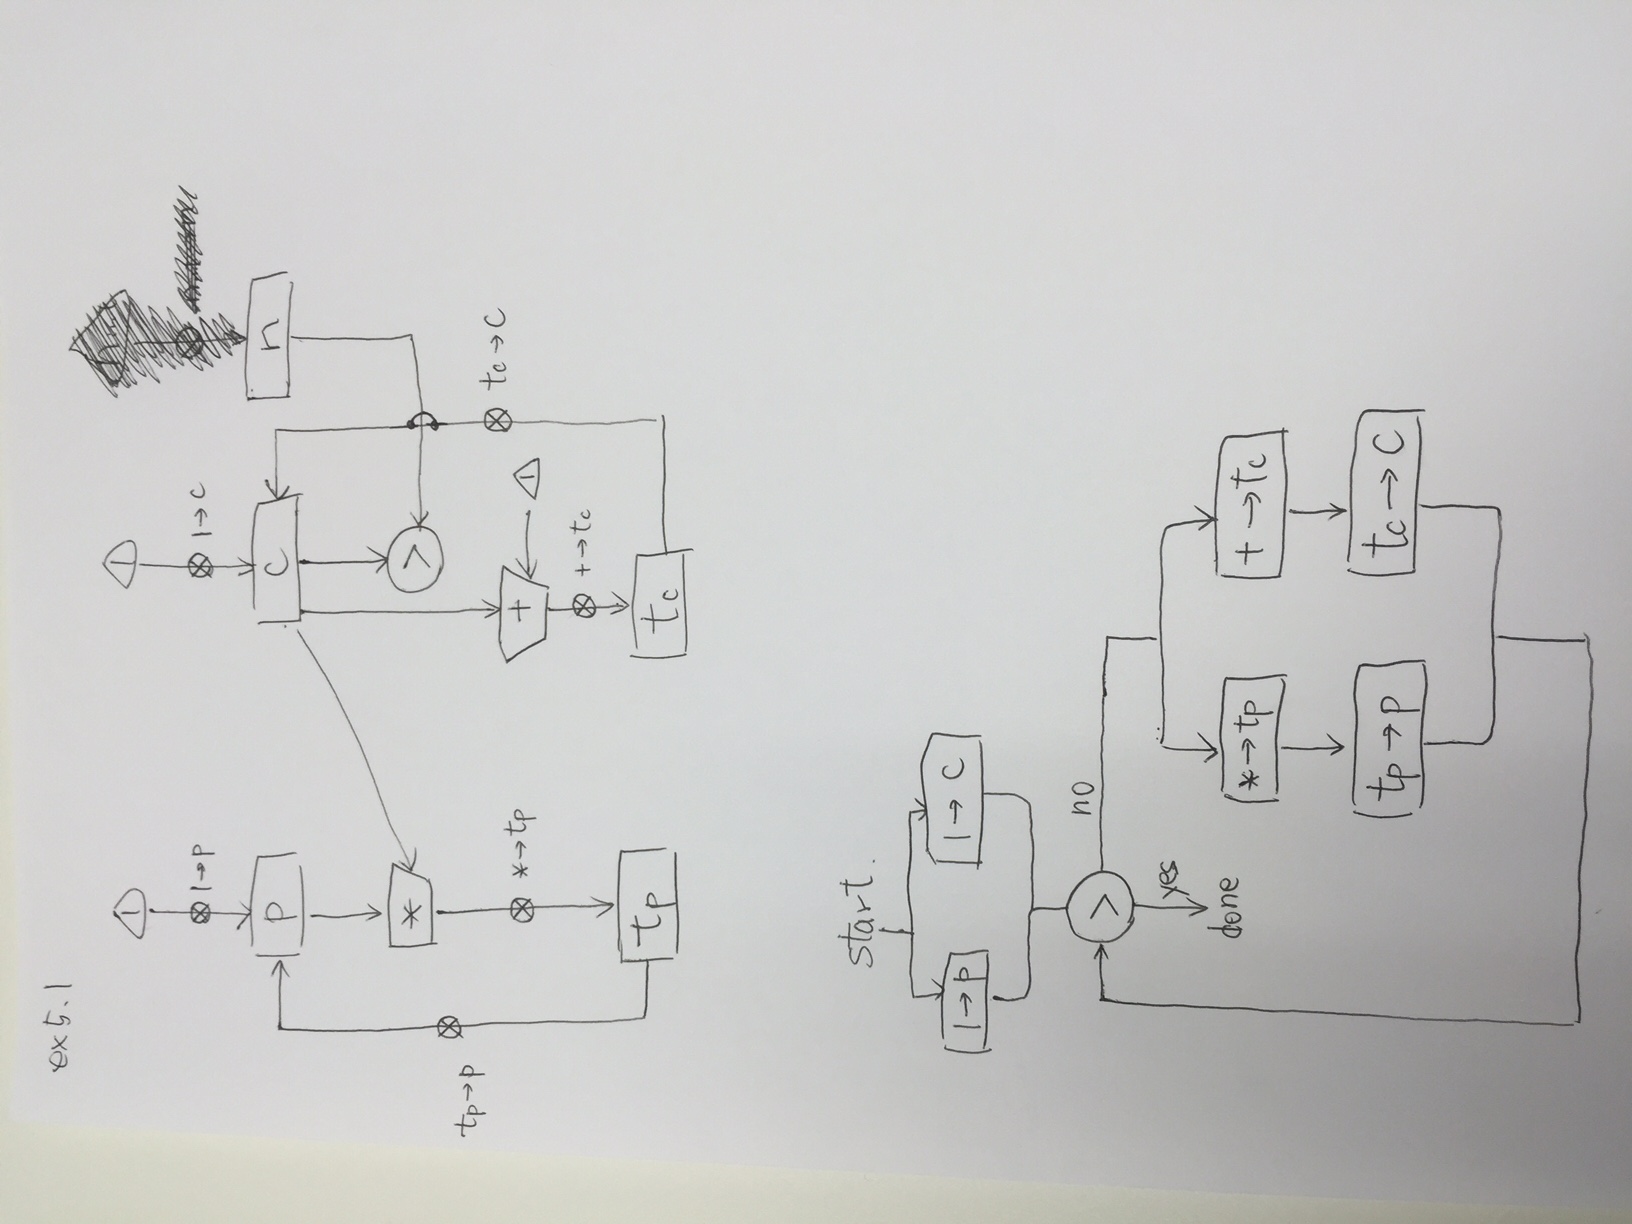 ex 5.1
1
1
1→p
1→c
p
c
n
*
>
tp→p
tc→c
*→tp
+
1
+→tc
tp
tc
start.
1→p
1→c
>
no
yes
done
*→tp
+→tc
tp→p
tc→c